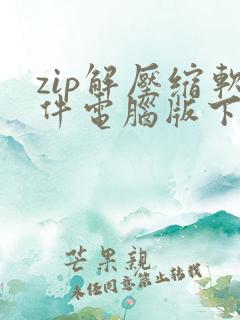 zip解壓縮軟
件電腦版下
芒果親
未經同意禁止轉載